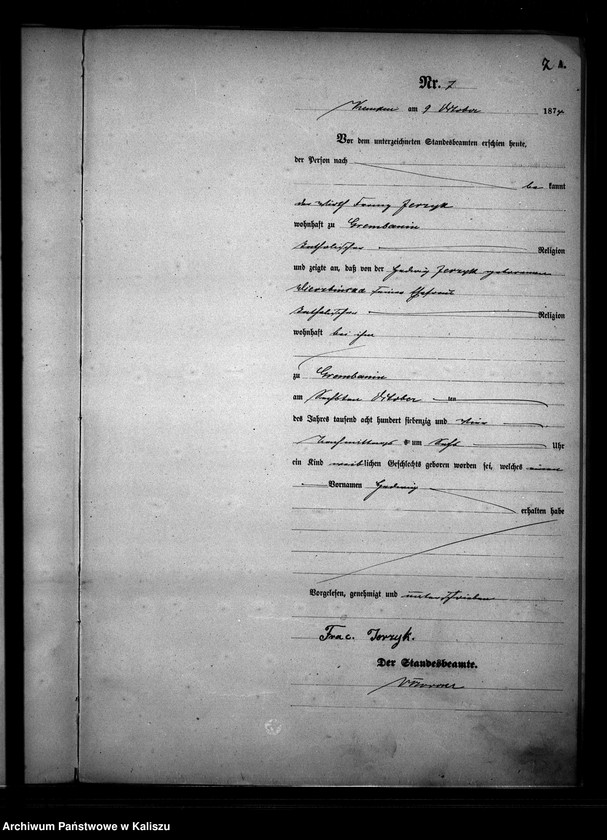 2 A.
Nr. 7
am 9 Oktober 1874
Vor dem unterzeichneten Standesbeamten erschien heute,
der Person nach
be kannt
der Wirth Franz Jerzyk
wohnhaft zu Grembanin
katholischer Religion
und zeigte an, daß von der Hedwig Jerzyk geborenen
seiner Ehefrau
katholischer Religion
wohnhaft bei ihm
zu Grembanin
am sechsten Oktober
des Jahres tausend acht hundert siebenzig und vier
Nachmittags um Uhr
ein Kind weiblichen Geschlechts geboren worden sei, welches einen
Vornamen Hedwig
erhalten habe
Vorgelesen, genehmigt und unterschrieben
Franc. Jerzyk.
Der Standesbeamte.
Archiwum Państwowe w Kaliszu